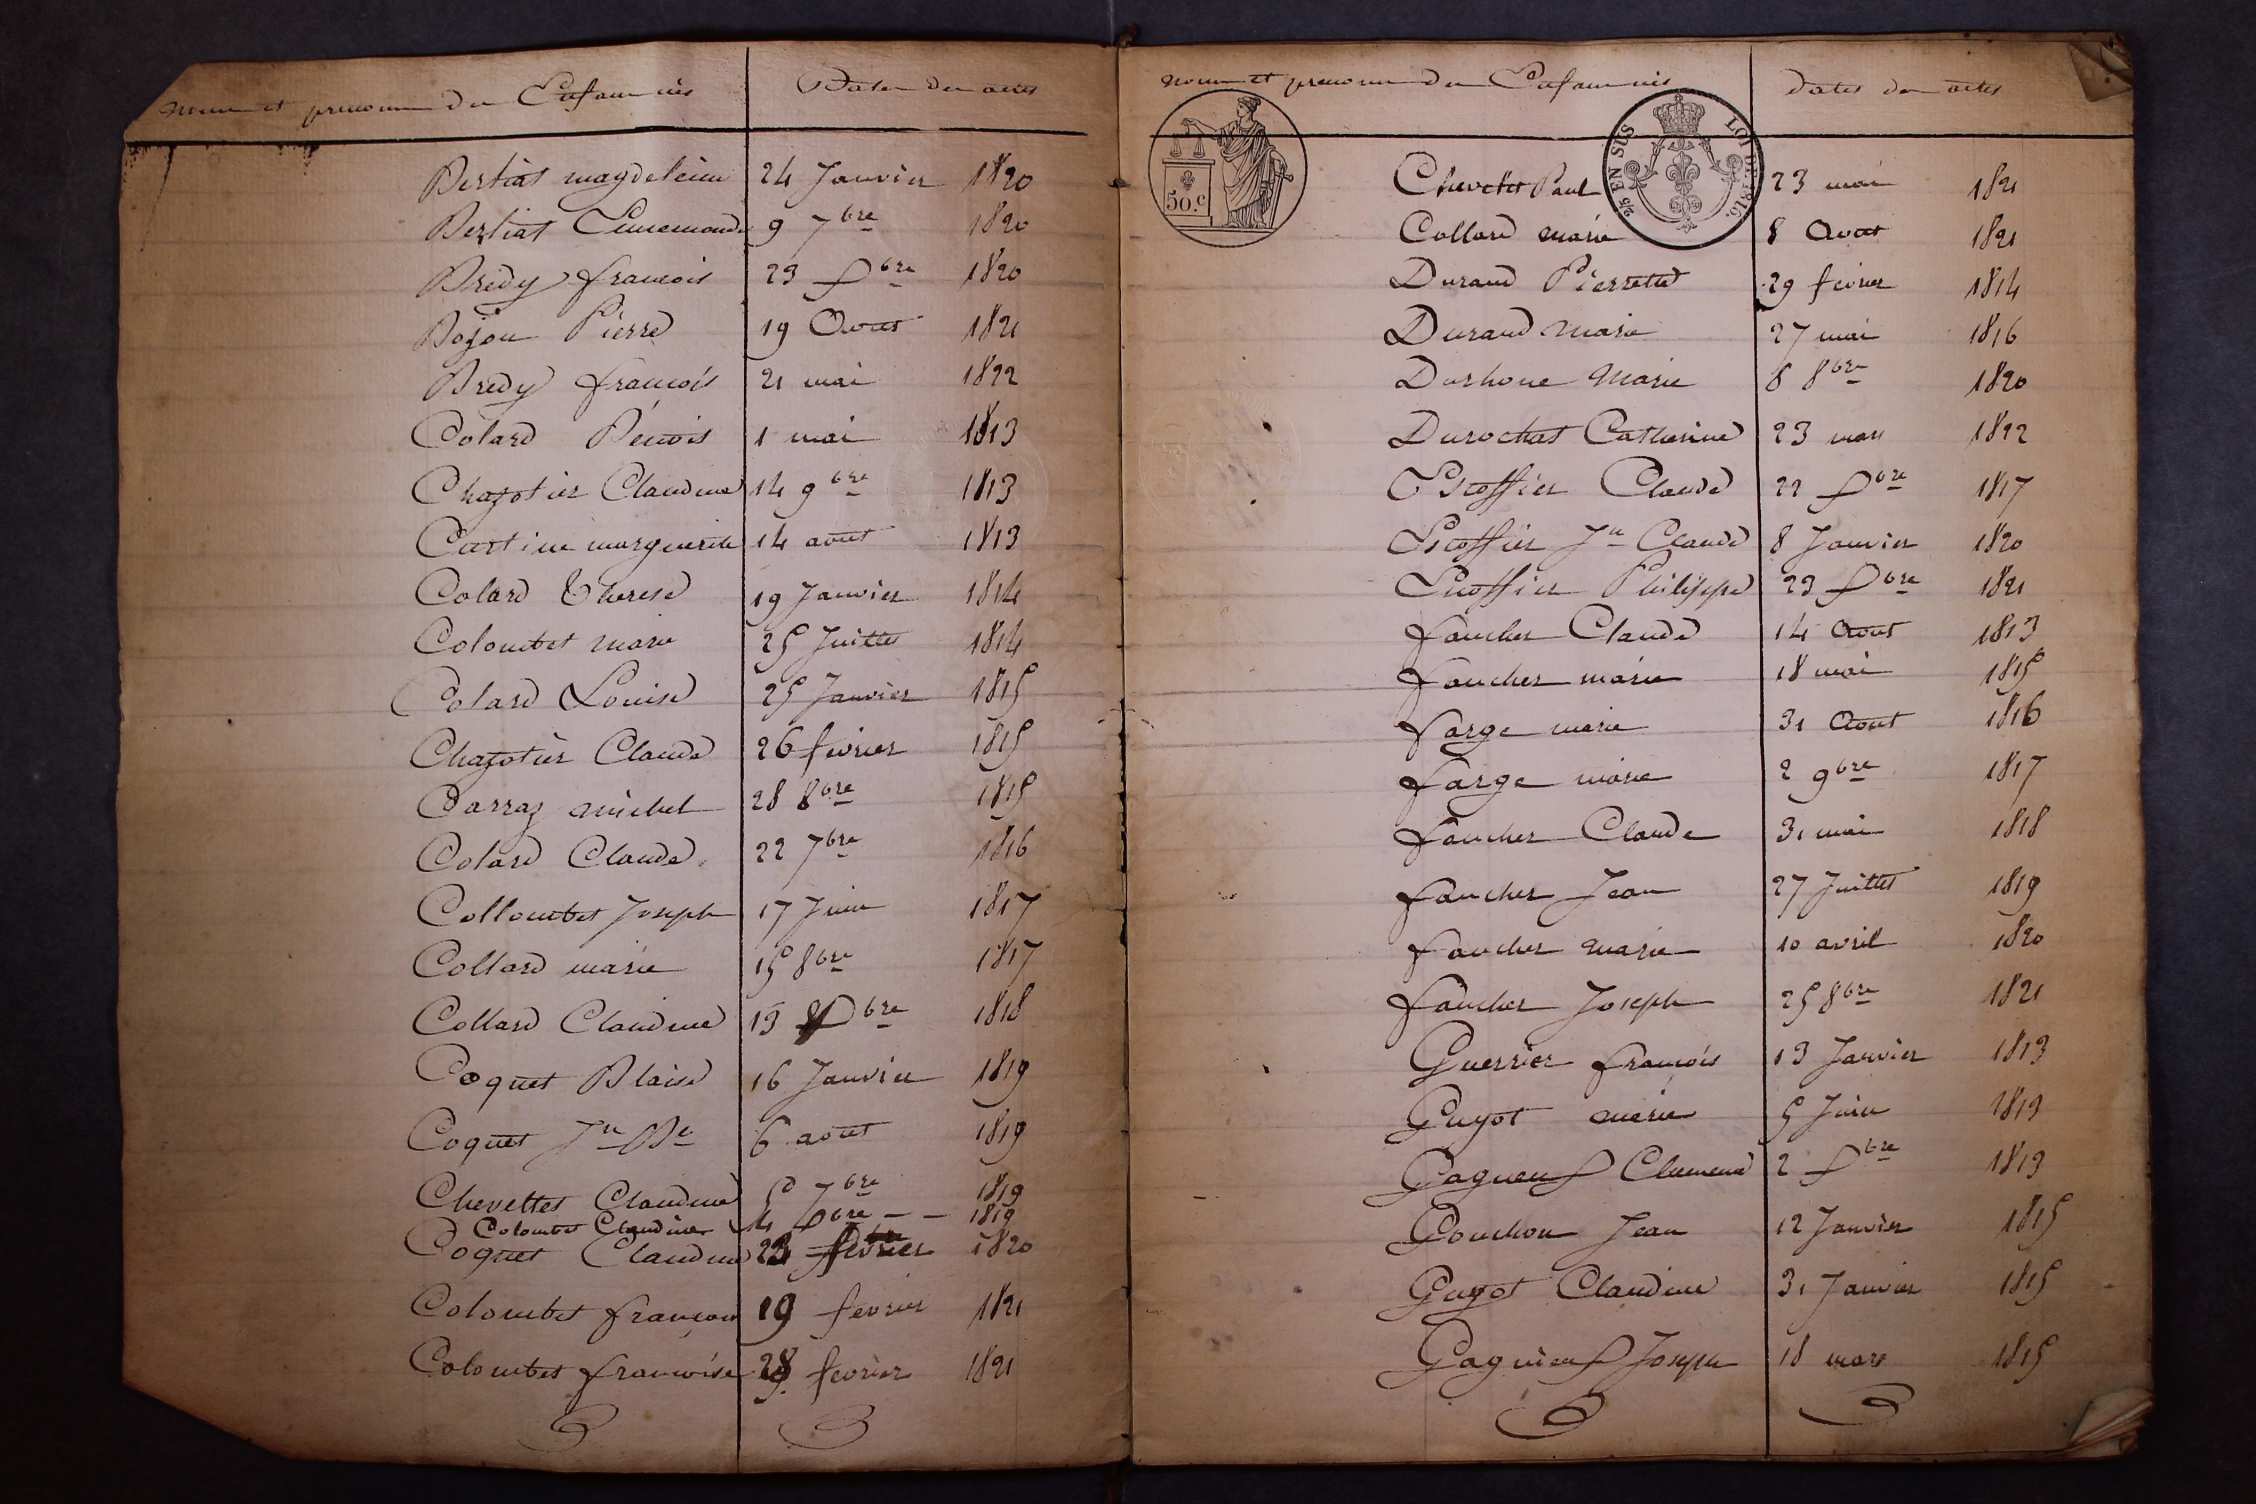 nom et prenom des Enfans nés Dates des actes
Bertiat magdeleine 24 Janvier 1820
Bertiat 9 7bre 1820
Bredy françois 23 Xbre 1820
Bojon Pierre 19 Aout 1821
Bredy françois 21 mai 1822
Colard Bénois 1 mai 1813
Chazotier Claudine 14 9bre 1813
marguerite 14 aout 1813
Colard Therese 19 Janvier 1814
Colombet marie 25 Juillet 1814
Colard Louise 25 Janvier 1815
Chazotier Claude 26 fevrier 1815
Carraz michel 28 8bre 1815
Colard Claude 22 7bre 1816
Collombet Joseph 17 Juin 1817
Collard marie 15 8bre 1817
Collard Claudine 15 Xbre 1818
Coquet Blaise 16 Janvier 1819
Coquet Jn Bte 6 aout 1819
Chevettet Claudine 5 7bre 1819
Colombet Claudine 14 Xbre - - 1819
Coquet Claudine 23 fevrier 1820
Colombet françois 19 fevrier 1821
Colombet françoise 28 fevrier 1821
nom et prenom des Enfans nés dates des actes
50.c
2/5 EN SUS LOI DE 1816.
Chevettet Paul 23 mai 1821
Collard marie 8 Aout 1821
Durand Pierrette 29 fevrier 1814
Durand Marie 27 mai 1816
Marie 8 8bre 1820
Durochat Catherine 23 mars 1822
Escoffier Claude 22 Xbre 1817
Escoffier Jn Claude 8 Janvier 1820
Escoffier Philippe 23 Xbre 1821
faucher Claude 14 Aout 1813
faucher marie 18 mai 1815
farge marie 31 Aout 1816
farge marie 2 9bre 1817
faucher Claude 31 mai 1818
faucher Jean 27 Juillet 1819
faucher marie 10 avril 1820
faucher Joseph 25 8bre 1821
Guerrier françois 13 Janvier 1813
Guyot marie 5 Juin 1813
2 Xbre 1813
Gouchon Jean 12 Janvier 1815
Guyot Claudine 31 Janvier 1815
Joseph 18 mars 1815